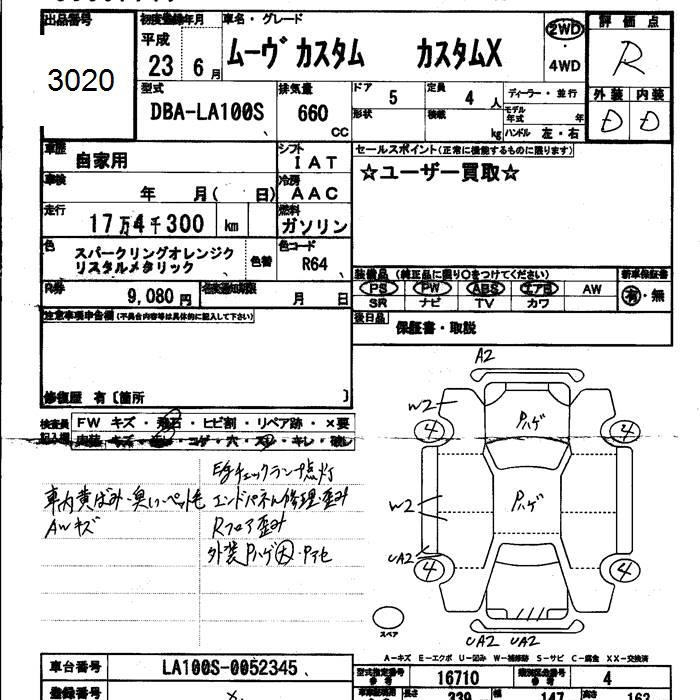 出品番号 初度登録年月 車名・グレード 評価点
3020 平成 23 6月 ムーヴ カスタム カスタムX 2WD 4WD R
型式 DBA-LA100S 排気量 660 CC ドア 5 定員 4人 ディーラー・並行 外装 内装
形状 積載 kg モデル年式 年 ハンドル 左・右 D D
車歴 自家用 シフト IAT セールスポイント(正常に機能するものに限ります)
車検 年 月( 日) 冷房 AAC ☆ユーザー買取☆
走行 17万4千300 km 燃料 ガソリン
色 スパークリングオレンジク 色替 色コード R64
リスタルメタリック
装備品 (純正品に限り○をつけてください) 新車保証書
R券 9,080円 名変通知期限 月 日 PS PW ABS エアB AW 有・無
SR ナビ TV カワ
注意事項申告欄(不具合内容等は具体的に記入して下さい) 後日品 保証書・取説
修復歴 有〔箇所 〕
検査員記入欄 FW キズ・飛石・ヒビ割・リペア跡・×要
内装 キズ・汚レ・コゲ・穴・スレ・キレ・破レ
E/gチェックランプ点灯
車内黄ばみ・臭い・ペット毛 エンドパネル修理・歪み
AWキズ Rフロア歪み
外装Pハゲ大・Pアセ
A2
W2 Pハゲ
4 4
W2 Pハゲ
UA2
4 4
スペア
UA2 UA2
A-キズ E-エクボ U-凹み W-補修跡 S-サビ C-腐食 XX-交換済
車台番号 LA100S-0052345 型式指定番号 16710 類別区分番号 4
登録番号 長さ 339 幅 147 高さ 163